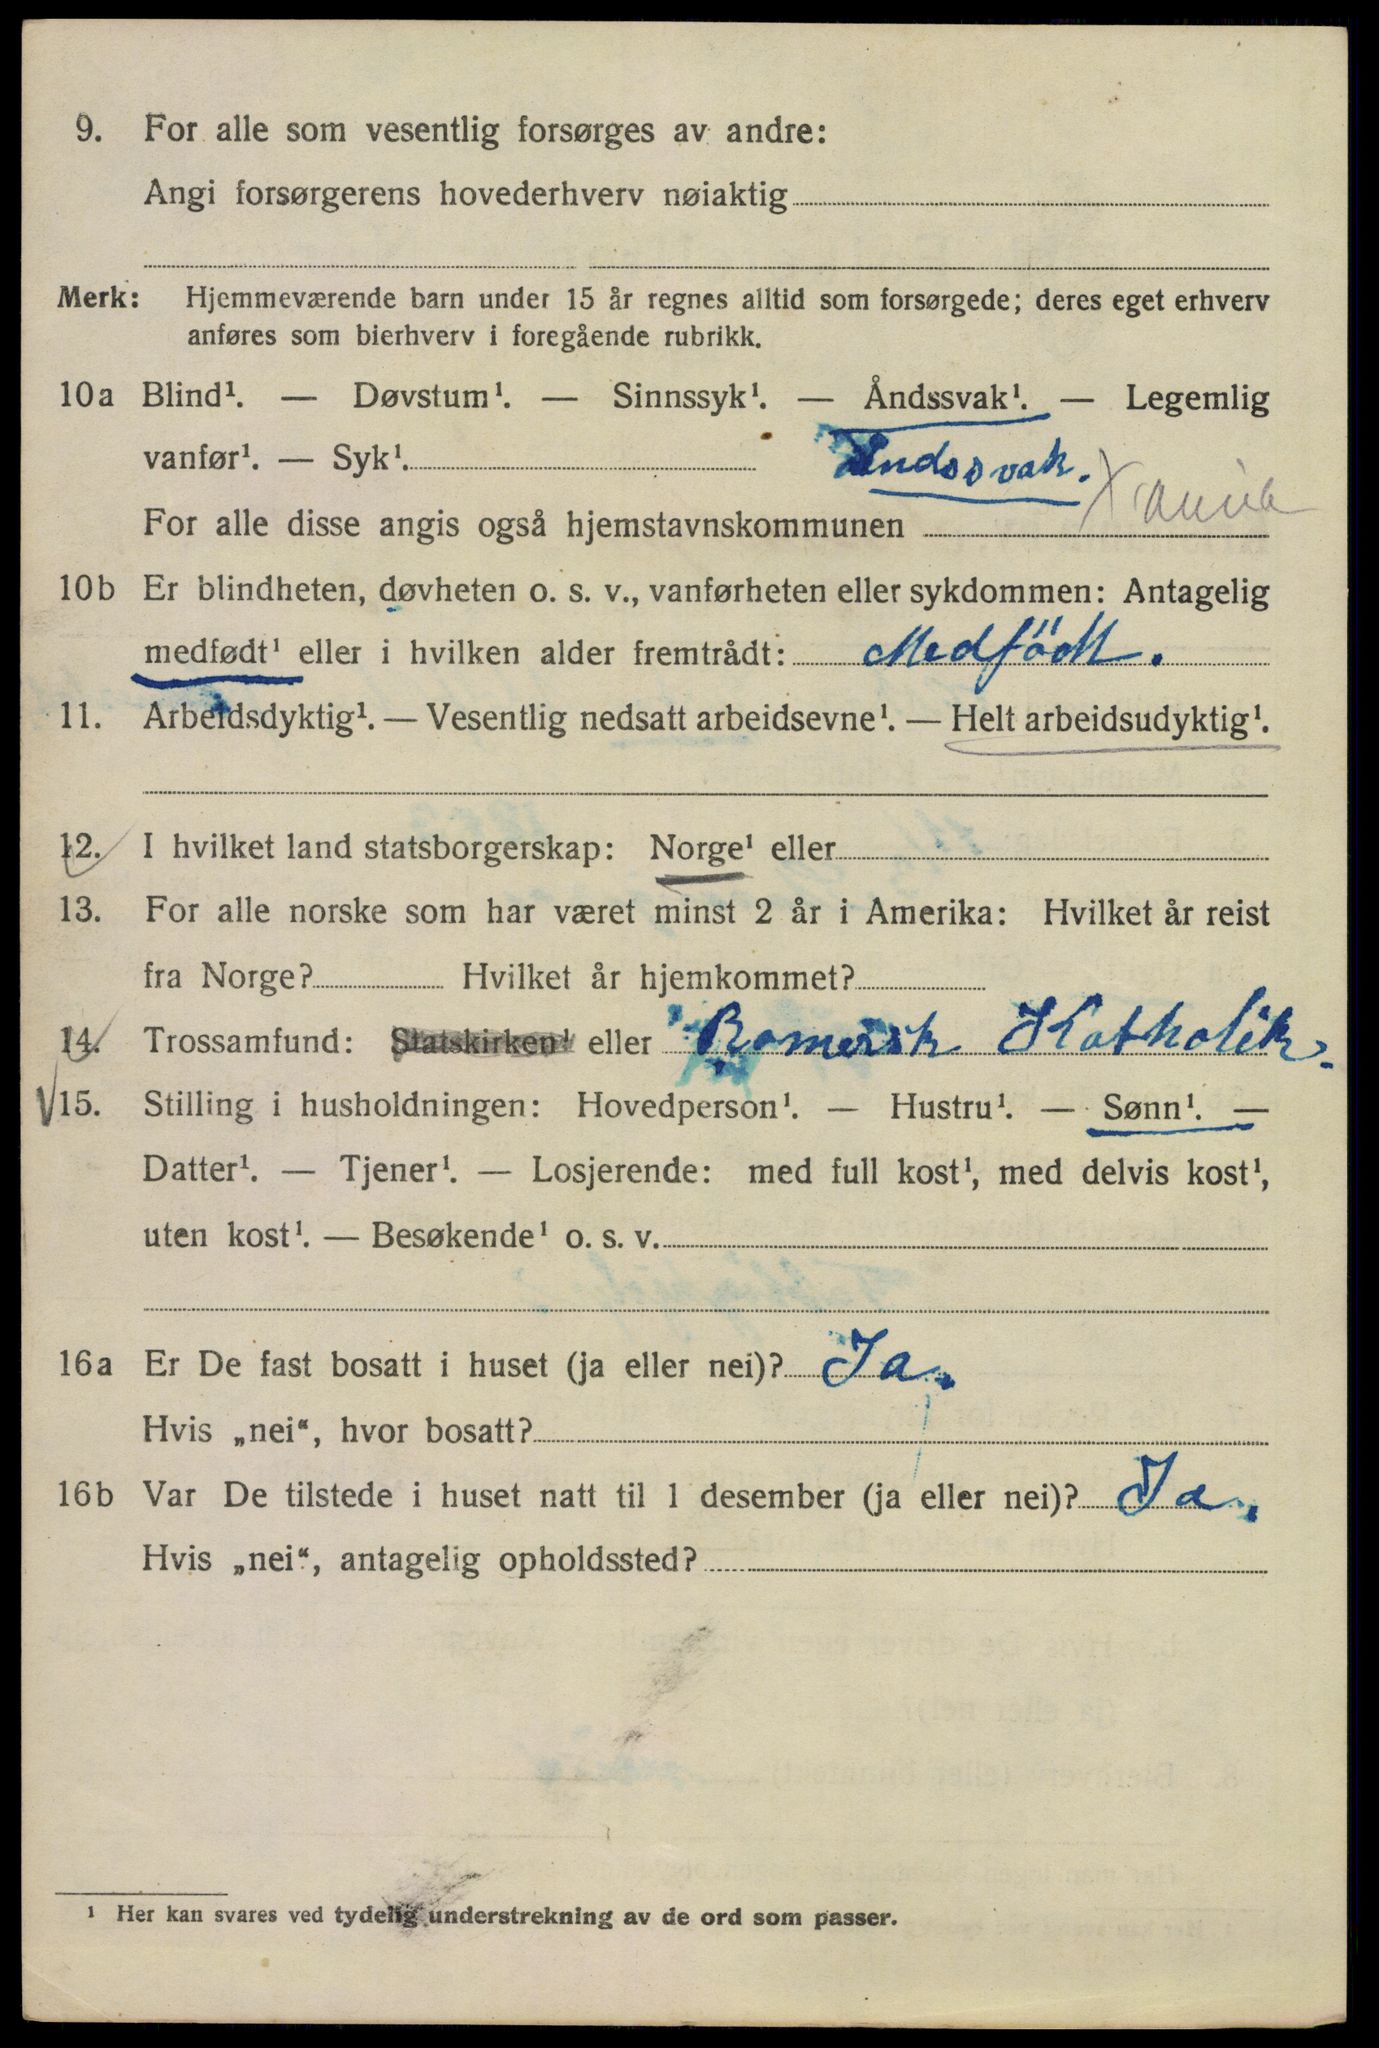 9. For alle som vesentlig forsørges av andre:
Angi forsørgerens hovederhverv nøiaktig
Merk: Hjemmeværende barn under 15 år regnes alltid som forsørgede; deres eget erhverv
anføres som bierhverv i foregående rubrikk.
10a Blind¹. — Døvstum¹. — Sinnssyk¹. — Åndssvak¹. — Legemlig
vanfør¹. — Syk¹. Åndssvak.
For alle disse angis også hjemstavnskommunen
10b Er blindheten, døvheten o. s. v., vanførheten eller sykdommen: Antagelig
medfødt¹ eller i hvilken alder fremtrådt: Medfödt.
11. Arbeidsdyktig¹. — Vesentlig nedsatt arbeidsevne¹. — Helt arbeidsudyktig¹.
12. I hvilket land statsborgerskap: Norge¹ eller
13. For alle norske som har været minst 2 år i Amerika: Hvilket år reist
fra Norge? Hvilket år hjemkommet?
14. Trossamfund: Statskirken¹ eller Romersk Katholik.
15. Stilling i husholdningen: Hovedperson¹. — Hustru¹. — Sønn¹. —
Datter¹. — Tjener¹. — Losjerende: med full kost¹, med delvis kost¹,
uten kost¹. — Besøkende¹ o. s. v.
16a Er De fast bosatt i huset (ja eller nei)? Ja.
Hvis „nei“, hvor bosatt?
16b Var De tilstede i huset natt til 1 desember (ja eller nei)? Ja.
Hvis „nei“, antagelig opholdssted?
¹ Her kan svares ved tydelig understrekning av de ord som passer.